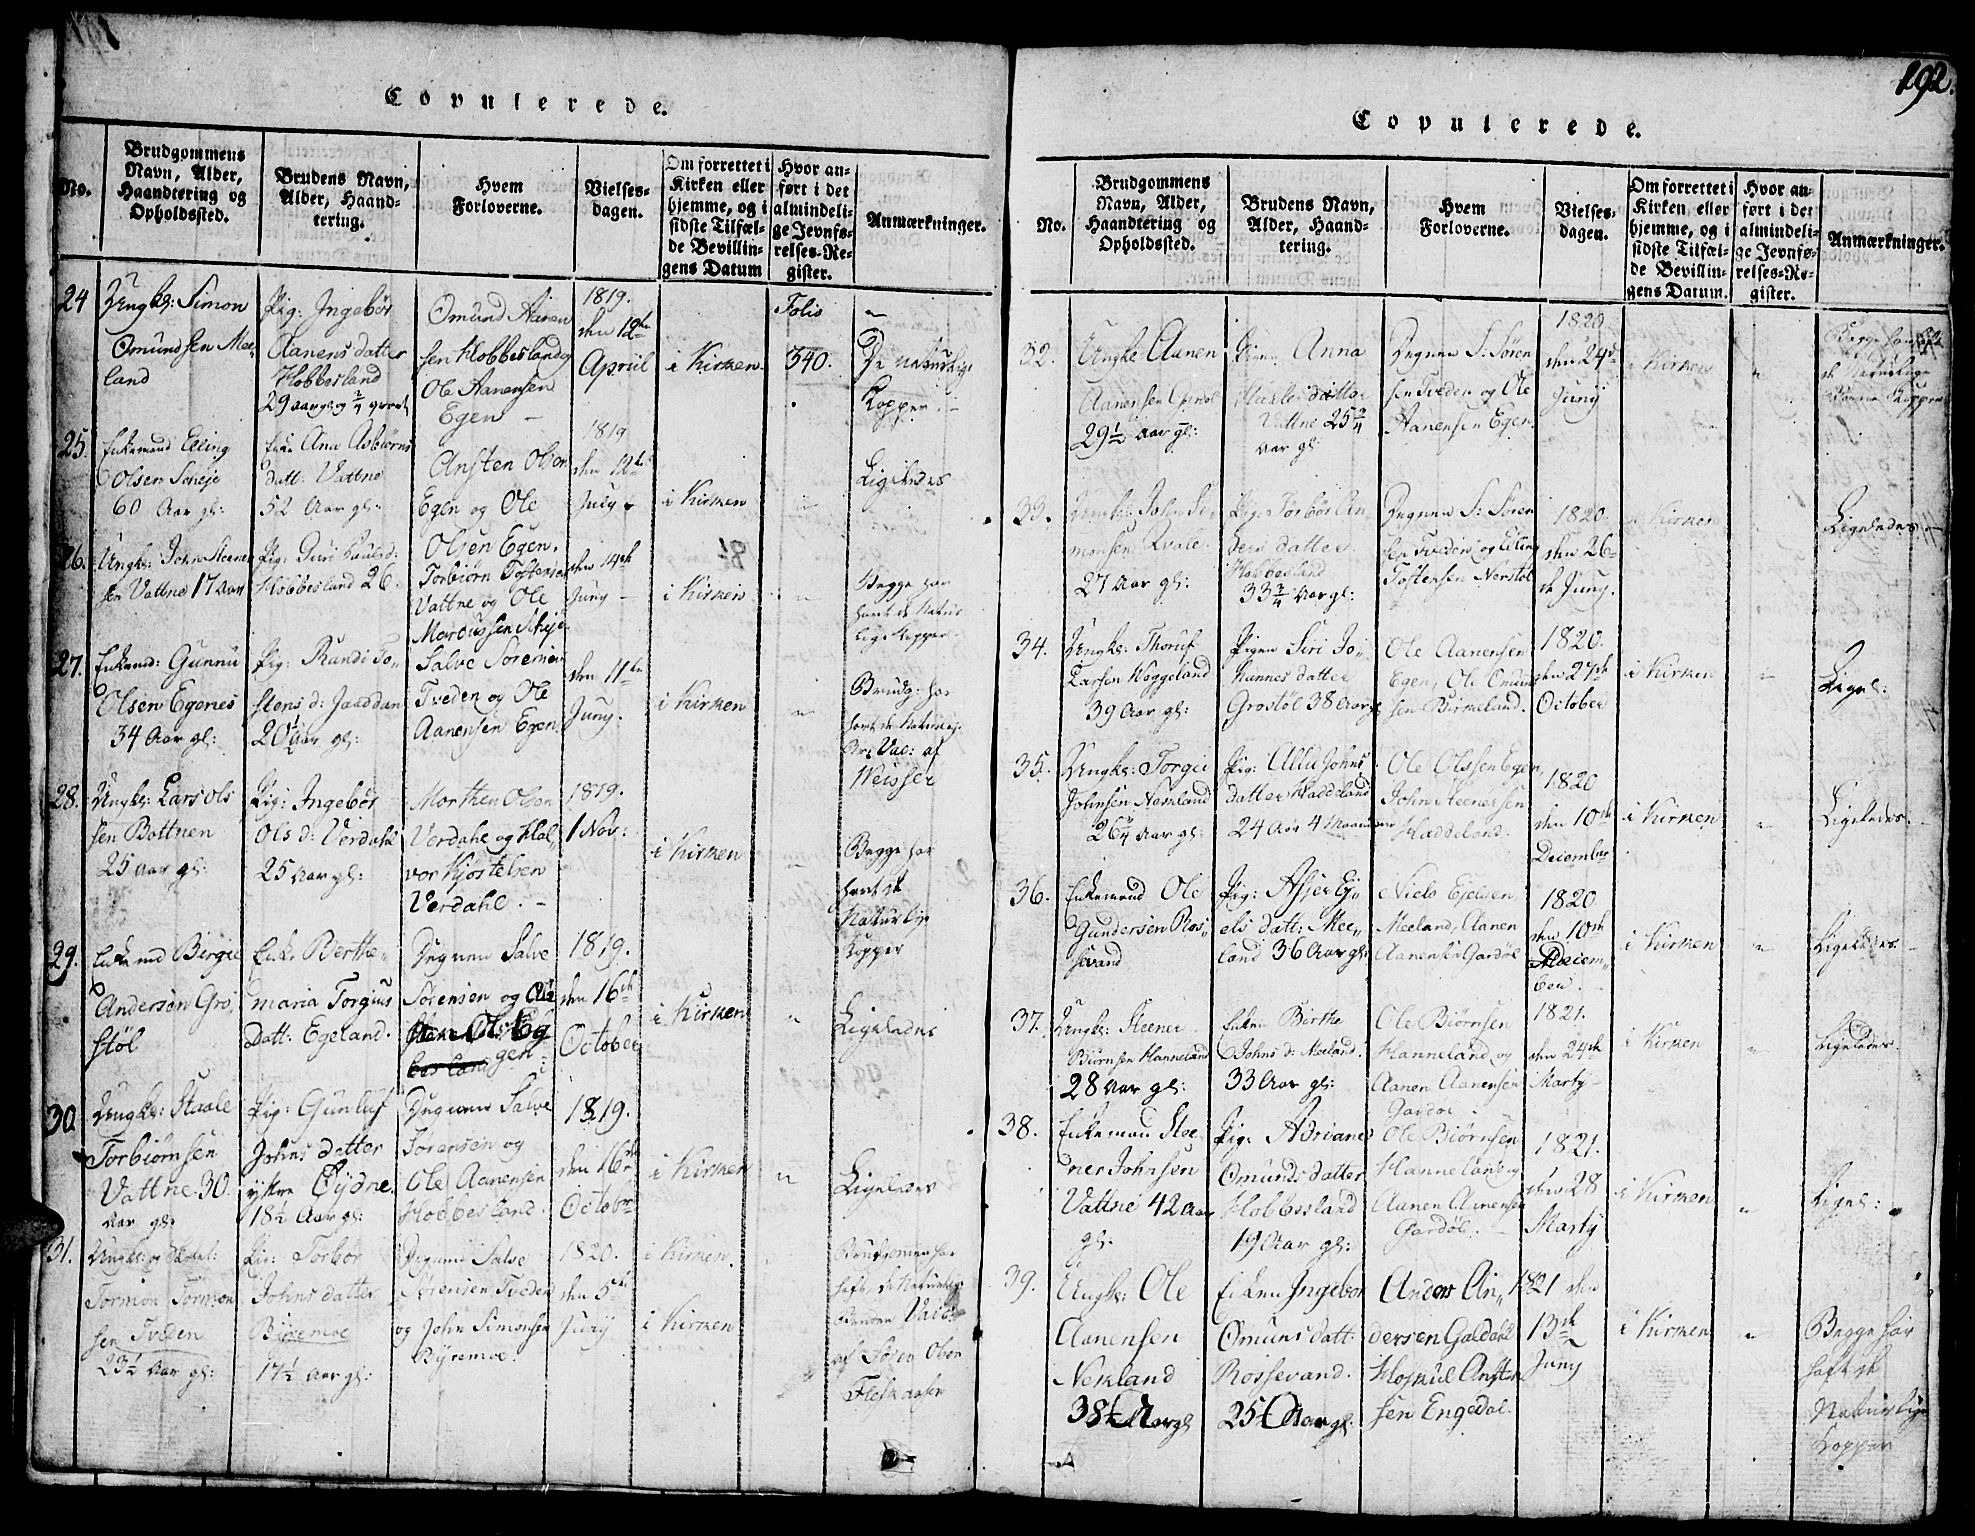 Copulerede.
No.
Brudgommens
Navn, Alder,
Haandtering og
Opholdssted.
Brudens Navn,
Alder, Haand-
tering.
Hvem
Forloverne.
Vielses-
dagen.
Om forrettet i
Kirken eller
hjemme, og i
sidste Tilfæl-
de Bevillin-
gens Datum
Hvor an-
ført i det
almindeli-
ge Jevnfø-
relses-Re-
gister.
Anmærkninger.
24
Ungk: Simon
Omundsen Mee-
land
Pig: Ingebor
Aanens datter
Hobbesland
29 aar og 2/4
Omund Aanen
sen Hobbesland og
Ole Aanensen
Egen –
1819.
den 12te
Apriil
i Kirken
Folio
340.
De naturlige
Kopper. –
25.
Enkemand Elling
Olsen Scheje
60 Aar gl:
Enke Ane Asbiørns
datt: Vattne
52 Aar gl:
Ansten Olsen
Egen og Ole
Olsen Egen.
1819
den 12te
Juny
i Kirken
Ligeledes
26.
Ungk: John Steener
sen Vattne 17 Aar
Pig: Guri
Hobbesland 26.
Torbiørn Tostensen
Vattne og Ole
Marcussen Scheje
den 14de
Juny –
i Kirken
Begge har
havt de Natur
lige Kopper.
27.
Enkemd: Gunnu
Olsen Egenes
34 Aar gl:
Pig: Rundi To-
stens d: Jaaddan
20 Aar gl:
Salve Sørensen
Tveden og Ole
Aanensen Egen
den 11te
Juny.
i Kirken
Brudg: har
havt de Naturlige
Br: Vac: af
Weisser
28.
Ungk: Lars Ols
sen Bottnen
25 aar gl:
Pig: Ingebor
Ols d: Verdahl
25 Aar gl:
Morthen Olsen
Verdahl og Hal-
vor Kjøstelsen
Verdahl. –
1819.
1 Nov:
i Kirken
Begge har
havt de
Naturlige
Kopper
29.
Enkemd Birgie
Andersen Gro-
støl
Enke Berthe-
maria Torgius
Datt: Egeland.
Degnen Salve
Sørensen og
gen
1819.
den 16de
October
i Kirken
Ligeledes
30
Ungk: Staale
Torbiørnsen
Vattne 30
Aar gl:
Pig: Gunluf
Johns datter
yttre Øydne.
18½ Aar gl:
Degnen Salve
Sørensen og
Ole Aanensen
Hobbesland.
1819.
den 16de
Octobr
i Kirken
Ligeledes
31.
Tormon Tormon
sen Tveden
23½ Aar gl:
Pig: Torbor
Johns datter
Byremoe
17½ Aar gl:
Degnend Salve
Sørensen Tveden
og John Simonsen
Byremoe.
1820.
den 5te
Juny
i Kirken.
i Kirken
Brudgomen har
haft de Naturlige
Bruden Vac:
af Søren Olsen
192.
Copulerede.
No.
Brudgommens
Navn, Alder,
Haandtering og
Opholdssted.
Brudens Navn,
Alder, Haand-
tering.
Hvem
Forloverne.
Vielses-
dagen.
Om forrettet i
Kirken eller
hjemme, og i
sidste Tilfæl-
de Bevillin-
gens Datum.
Hvor an-
ført i det
almindeli-
ge Jevnfø-
relses-Re-
gister.
Anmærkninger.
32.
Ungke Aanen
Aanensen
29½ Aar gl:
Anna
datter
Vattne 25 3/4
Aar gl
Degnen S: Søren
sen Tveden og Ole
Aanensen Egen
1820
den 24de
Juny
i Kirken
Begge
de Naturlige
Kopper
33.
Ungk:
monsen Kvale
27 Aar gl:
Pig: Torbor
ders datter
Hobbesland
33 3/4 Aar gl:
Degnen S: Søren
sen Tveden og Elling
Tostensen Nerstøl
1820.
den 26-
de Juny.
i Kirken
Ligeledes –
34.
Ungk: Thoruf
Larsen Høggeland
39 Aar gl:
Pigen Siri Jo-
hannes datter
Grostøl 38 Aar gl
Ole Aanensen
Egen, Ole Omund
sen Birkeland.
1820.
den 27de
October
i Kirken
Ligel:
35.
Ungk: Torgie
Johnsen Nomland
26 Aar gl:
Pig: Johns
datter Haddeland
24 Aar 4 Maaneder
Ole Olssen Egen
John Steenersen
Haddeland.
1820
den 10de
December
i Kirken
Ligeledes.
36.
Enkemand Ole
Gundersen Ros-
sevand
Pig: Asser Ej-
els datt: Mee-
land 36 Aar gl
Niels Ejelsen
Meeland, Aanen
Aanensen Gardøl
1820.
den 10de
Decem-
ber.
i Kirken
Ligeledes
37.
Ungk: Steener
Biørnsen Hanneland
28 Aar gl:
Enken Birthe
Johns d: Meeland.
33 Aar gl:
Ole Biørnsen
Hanneland og
Aanen Aanensen
Gardøl.
1821.
den 24de
Marty –
i Kirken
Ligeledes.
38.
Enkeman Stee
ner Johnsen
Vattne 42 Aar
gl:
Pig: Adriane
Omunds datter
Hobbesland
19 Aar gl:
Ole Biørnsen
Hanneland og
Aanen Aanensen
Gardøl. –
1821.
den 28
Marty
i Kirken
Ligel:
39.
Ungk: Ole
Aanensen
Nerland
38½ Aar gl
Enken Ingebor
Omuns datt:
Rossevand.
25½ Aar gl.
Anders An-
dersen Galdahl
Hoskul Ansten
sen Engedal.
1821 den
13de
Juny
i Kirken
Begge har
haft de
Naturlige
Kopper